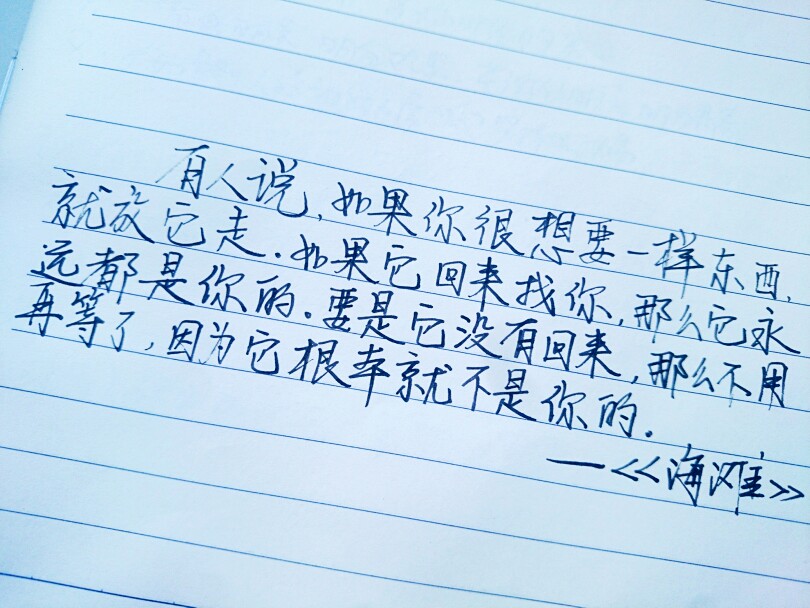 有人说,如果你很想要一样东西,
就放它走.如果它回来找你,那么它永
远都是你的.要是它没有回来,那么不用
再等了,因为它根本就不是你的.
—<<海滩>>